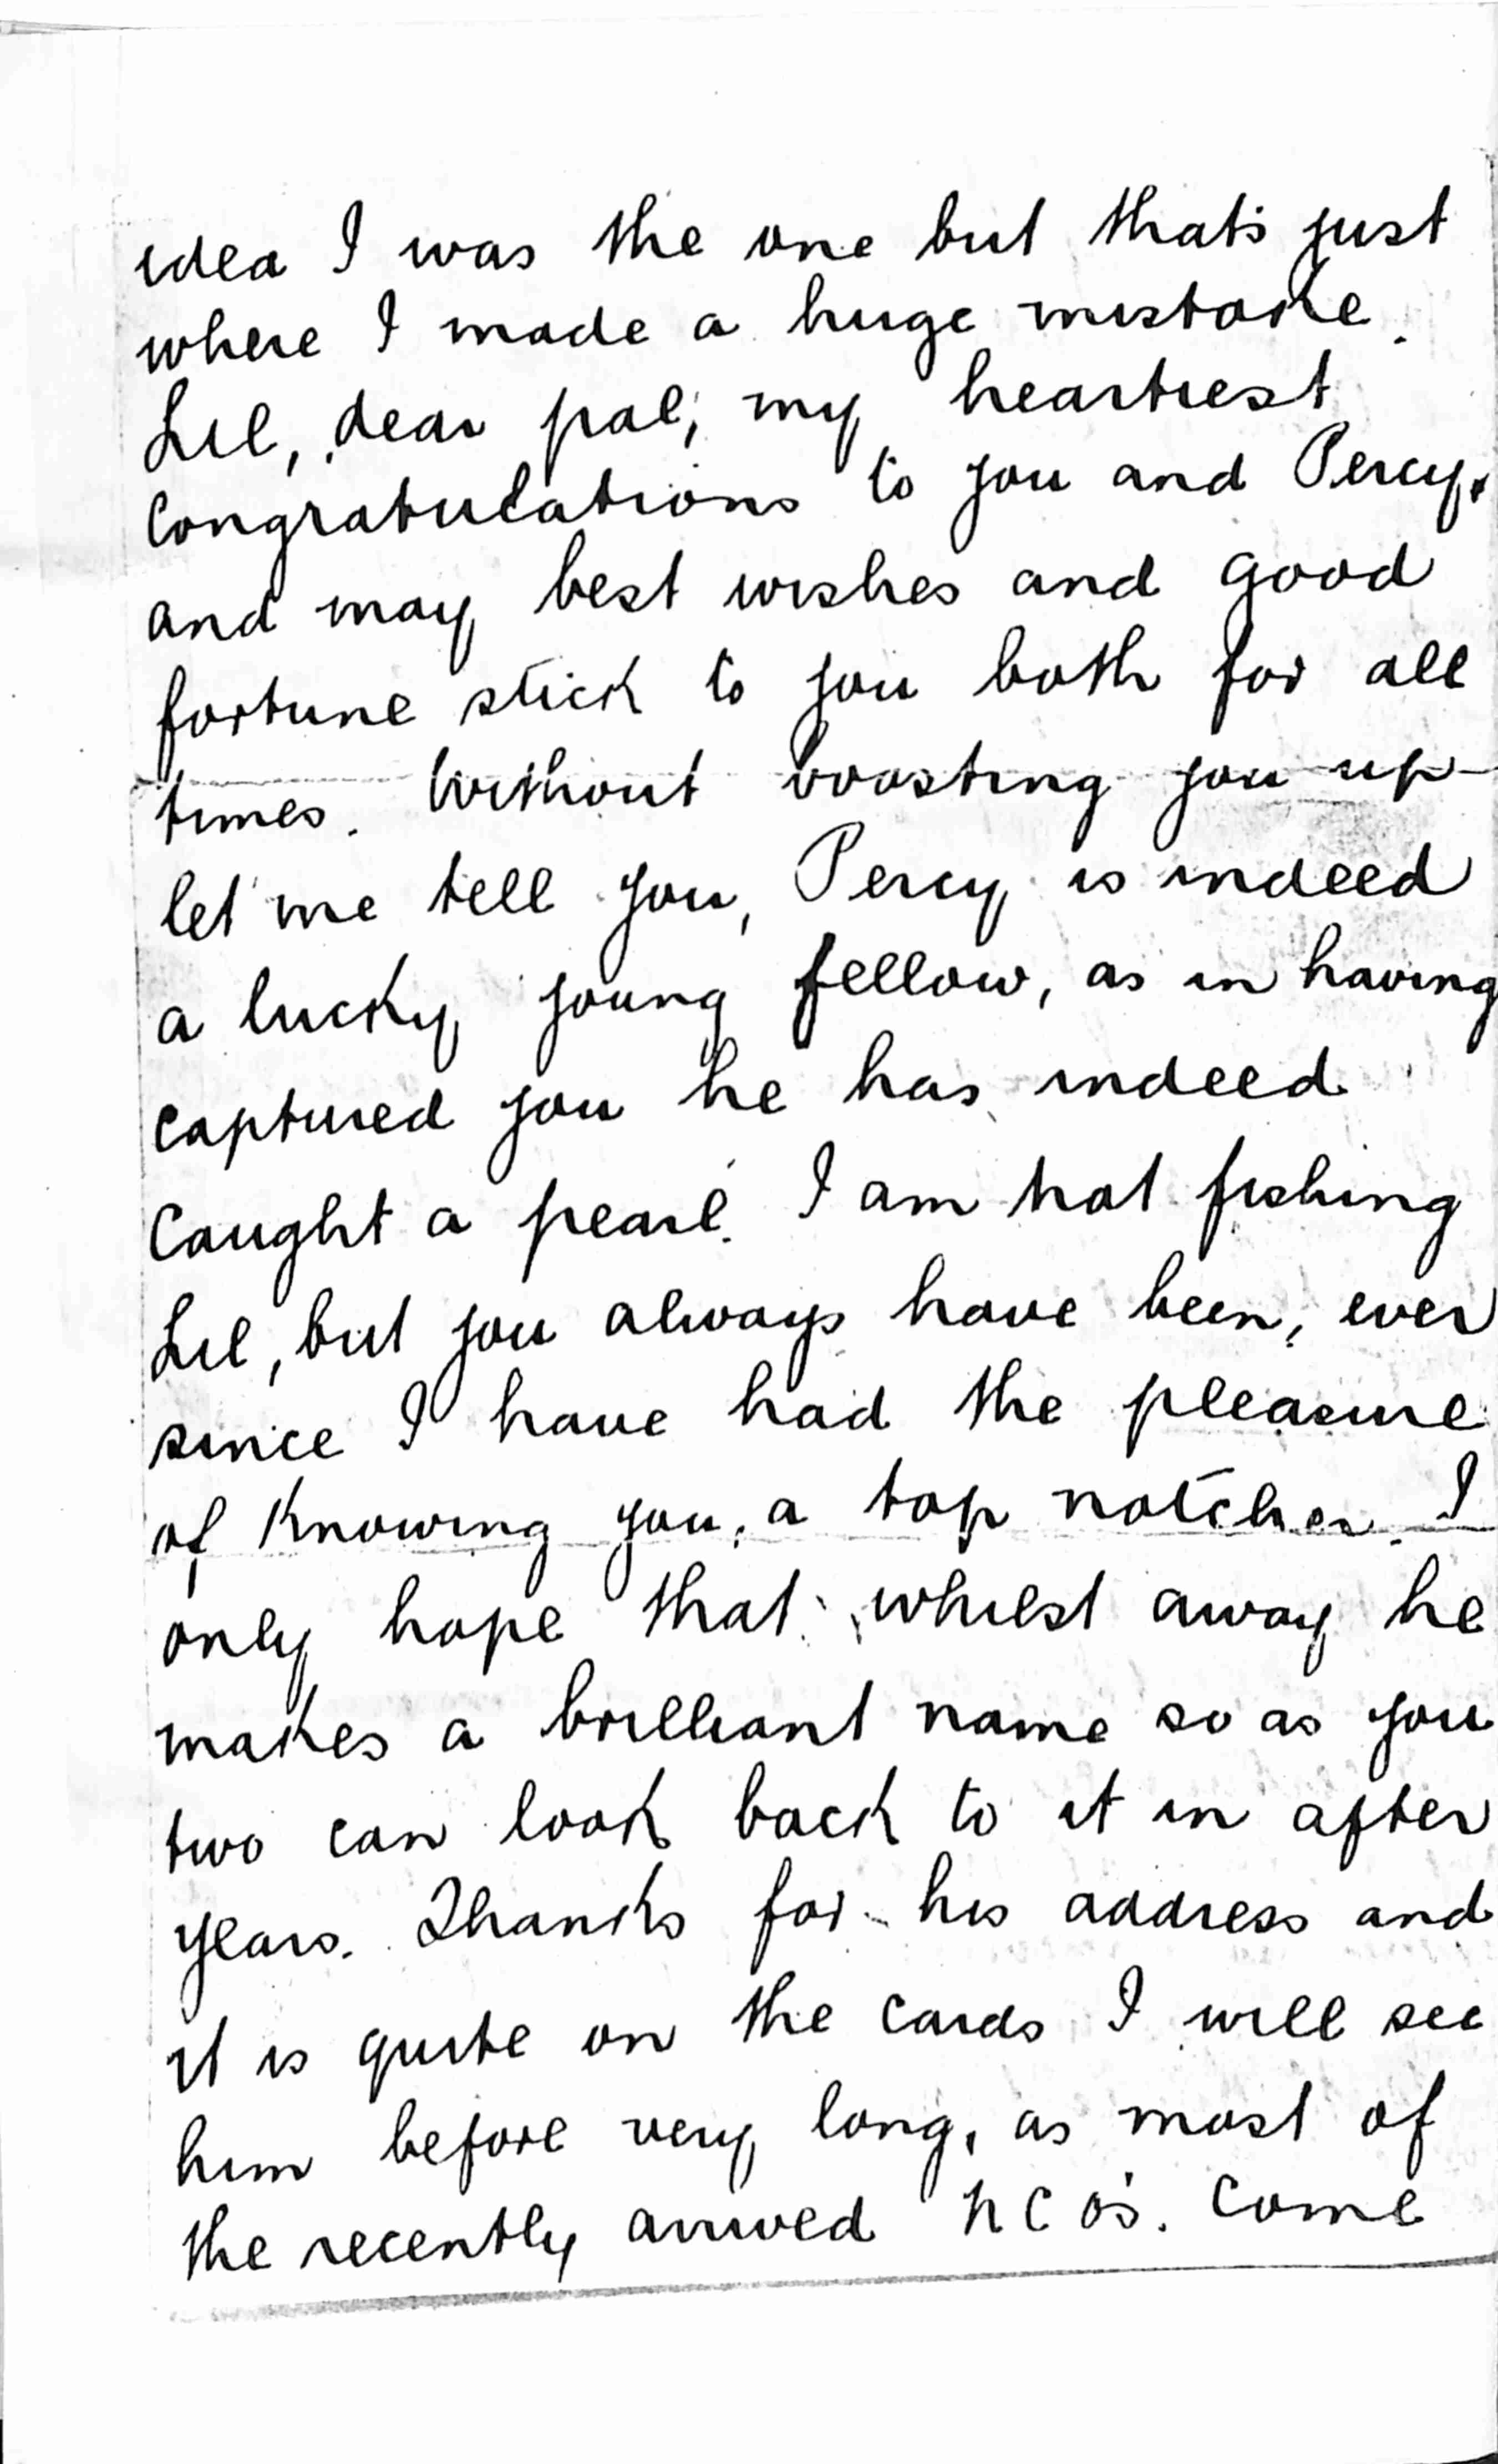 idea I was the one but that's just
where I made a huge mistake.
Lil, dear pal, my heartiest
congratulations to you and Percy,
and may best wishes and good
fortune stick to you both for all
times. Without boosting you up
let me tell you, Percy is indeed
a lucky young fellow, as in having
captured you he has indeed
caught a pearl. I am not fishing
Lil, but you always have been, ever
since I have had the pleasure
of knowing you, a top notcher. I
only hope that whilst away he
makes a brilliant name so as you
two can look back to it in after
years. Thanks for his address and
it is quite on the cards I will see
him before very long, as most of
the recently arrived NCO's. come